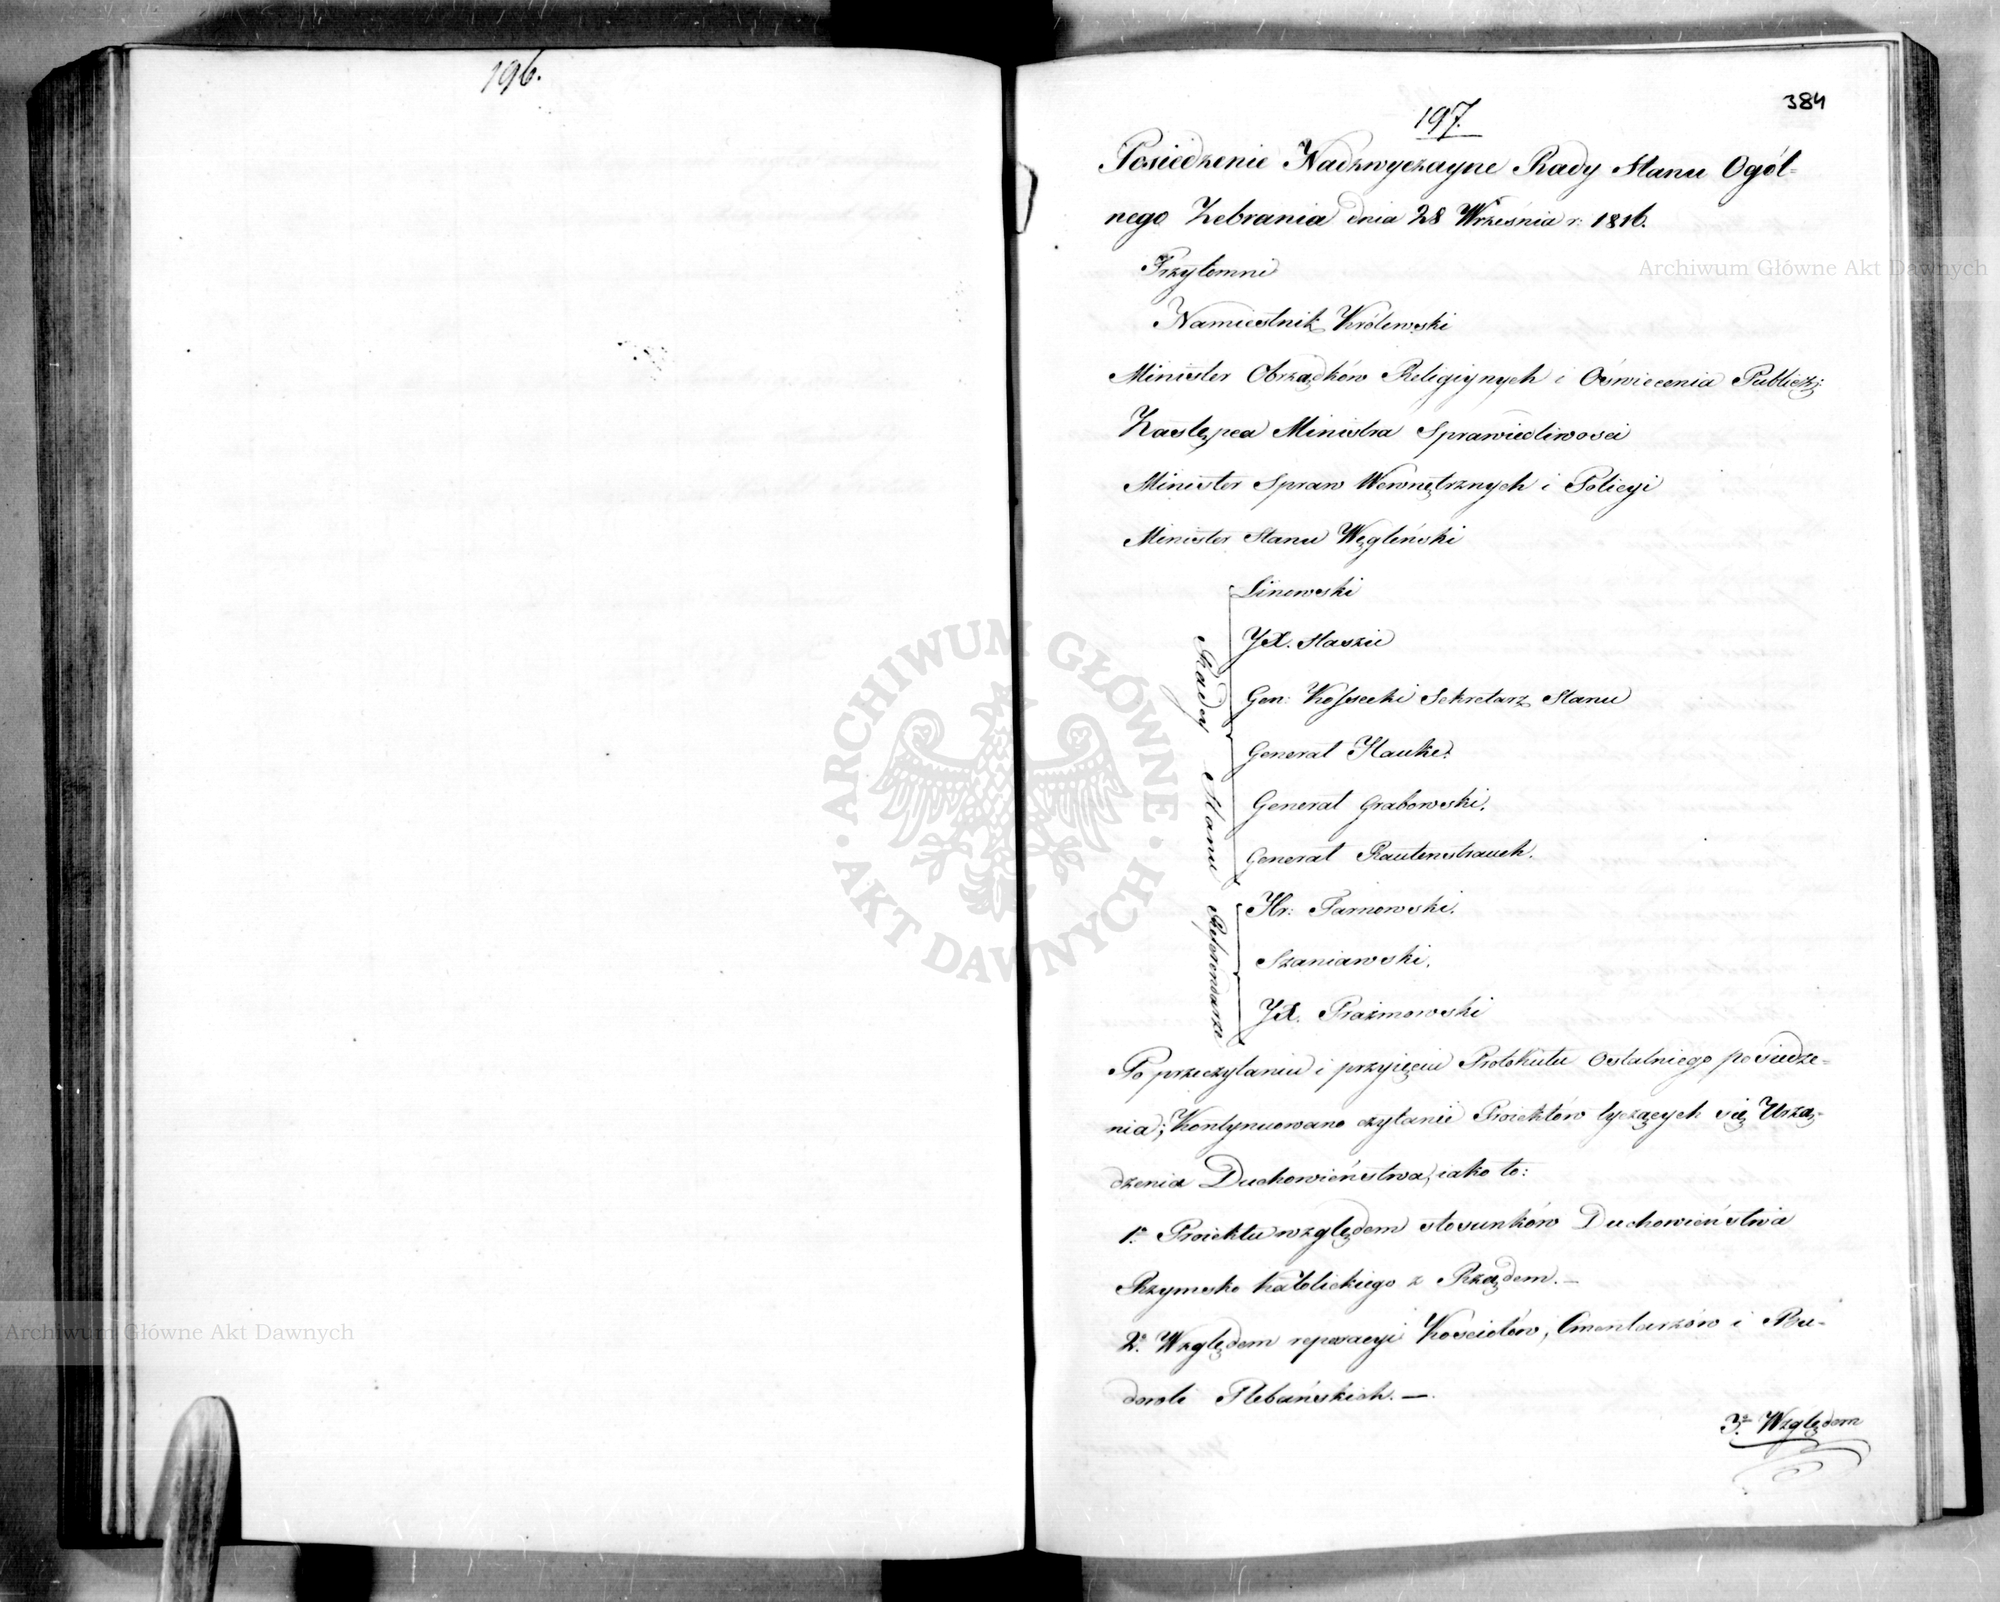 196.
384
197.
Posiedzenie Nadzwyczayne Rady Stanu Ogól-
nego Zebrania dnia 28 Września r: 1816.
Przytomni
Namiestnik Królewski
Minister Obrządków Religiynych i Oświecenia Publicz:
Zastępca Ministra Sprawiedliwości
Minister Spraw Wewnętrznych i Policyi
Minister Stanu Węgleński
Radcy Stanu
Linowski
JX. Staszic
Gen: Kossecki Sekretarz Stanu
Generał Hauke.
Generał Grabowski.
Generał Rautenstrauch.
Referendarze
Hr: Tarnowski.
Szaniawski.
JX. Prażmowski
Po przeczytaniu i przyięciu Protokułu Ostatniego posiedze-
nia; Kontynuowano czytanie Proiektów tyczących się Urzą-
dzenia Duchowieństwa, iako to:
1º Proiektu względem stosunków Duchowieństwa
Rzymsko Katolickiego z Rządem.—
2º Względem reparacyi Kościołów, Cmentarzów i Bu-
dowli Plebańskich.—
3º Względem
Archiwum Główne Akt Dawnych
Archiwum Główne Akt Dawnych
ARCHIWUM GŁÓWNE · AKT DAWNYCH ·